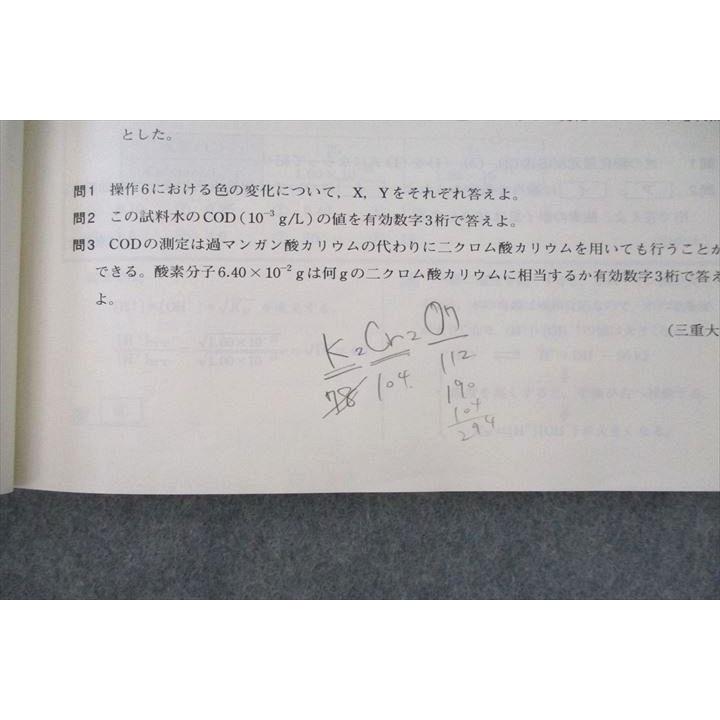 とした。
問1 操作6における色の変化について，X，Yをそれぞれ答えよ。
問2 この試料水のCOD(10⁻³ g/L)の値を有効数字3桁で答えよ。
問3 CODの測定は過マンガン酸カリウムの代わりに二クロム酸カリウムを用いても行うことが
できる。酸素分子6.40×10⁻² gは何gの二クロム酸カリウムに相当するか有効数字3桁で答え
よ。
(三重大
K₂Cr₂O7
78 104 112
190
104
294